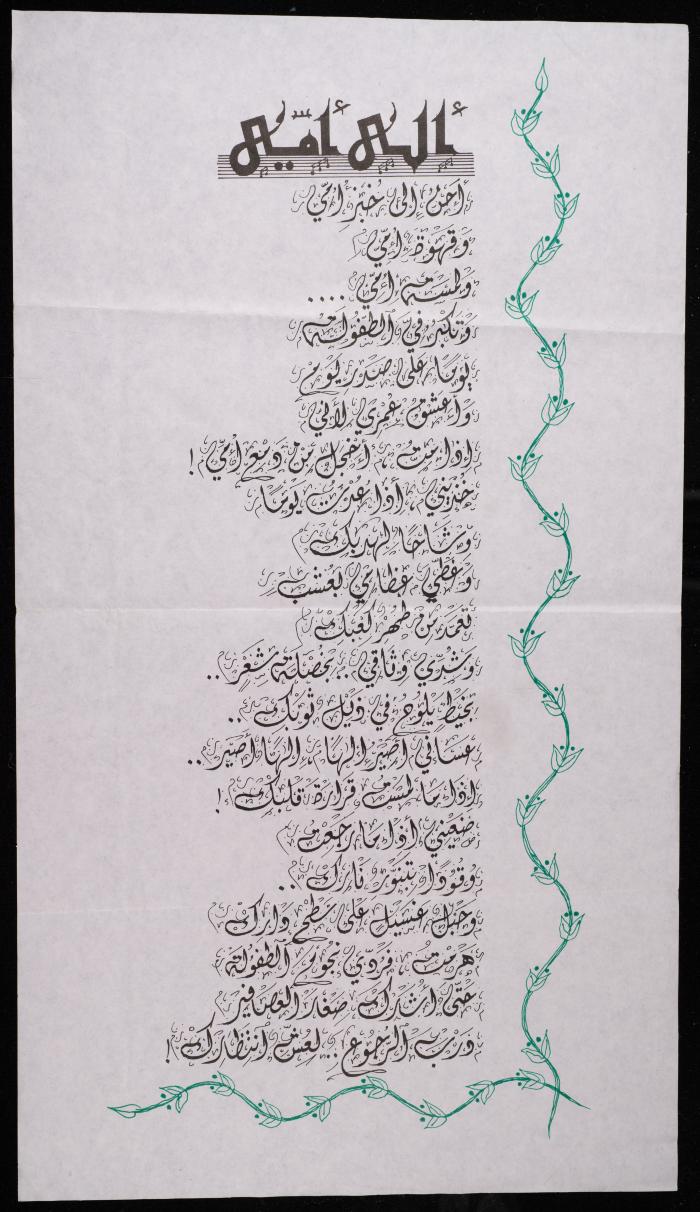 إلى أمي
أحن إلى خبز أمي
وقهوة أمي
ولمسة أمي ....
وتكبر في الطفولة
يومًا على صدر يوم
وأعشق عمري لأني
إذا مت ، أخجل من دمع أمي !
خذيني ، أذا عدت يومًا
وشاحًا لهدبك
وغطي عظامي بعشب
تعمد من طهر كعبك
وشدي وثاقي .. بخصلة شعر ..
بخيط يلوح في ذيل ثوبك ..
عساني أصير إلهًا ، إلهًا أصير ..
إذا ما لمست قرارة قلبك !
ضعيني أذا ما رجعت
وقودًا بتنور نارك ..
وحبل غسيل على سطح دارك
هرمت ، فردي نجوم الطفولة
حتى أشارك صغار العصافير
درب الرجوع .. لعش انتظارك !